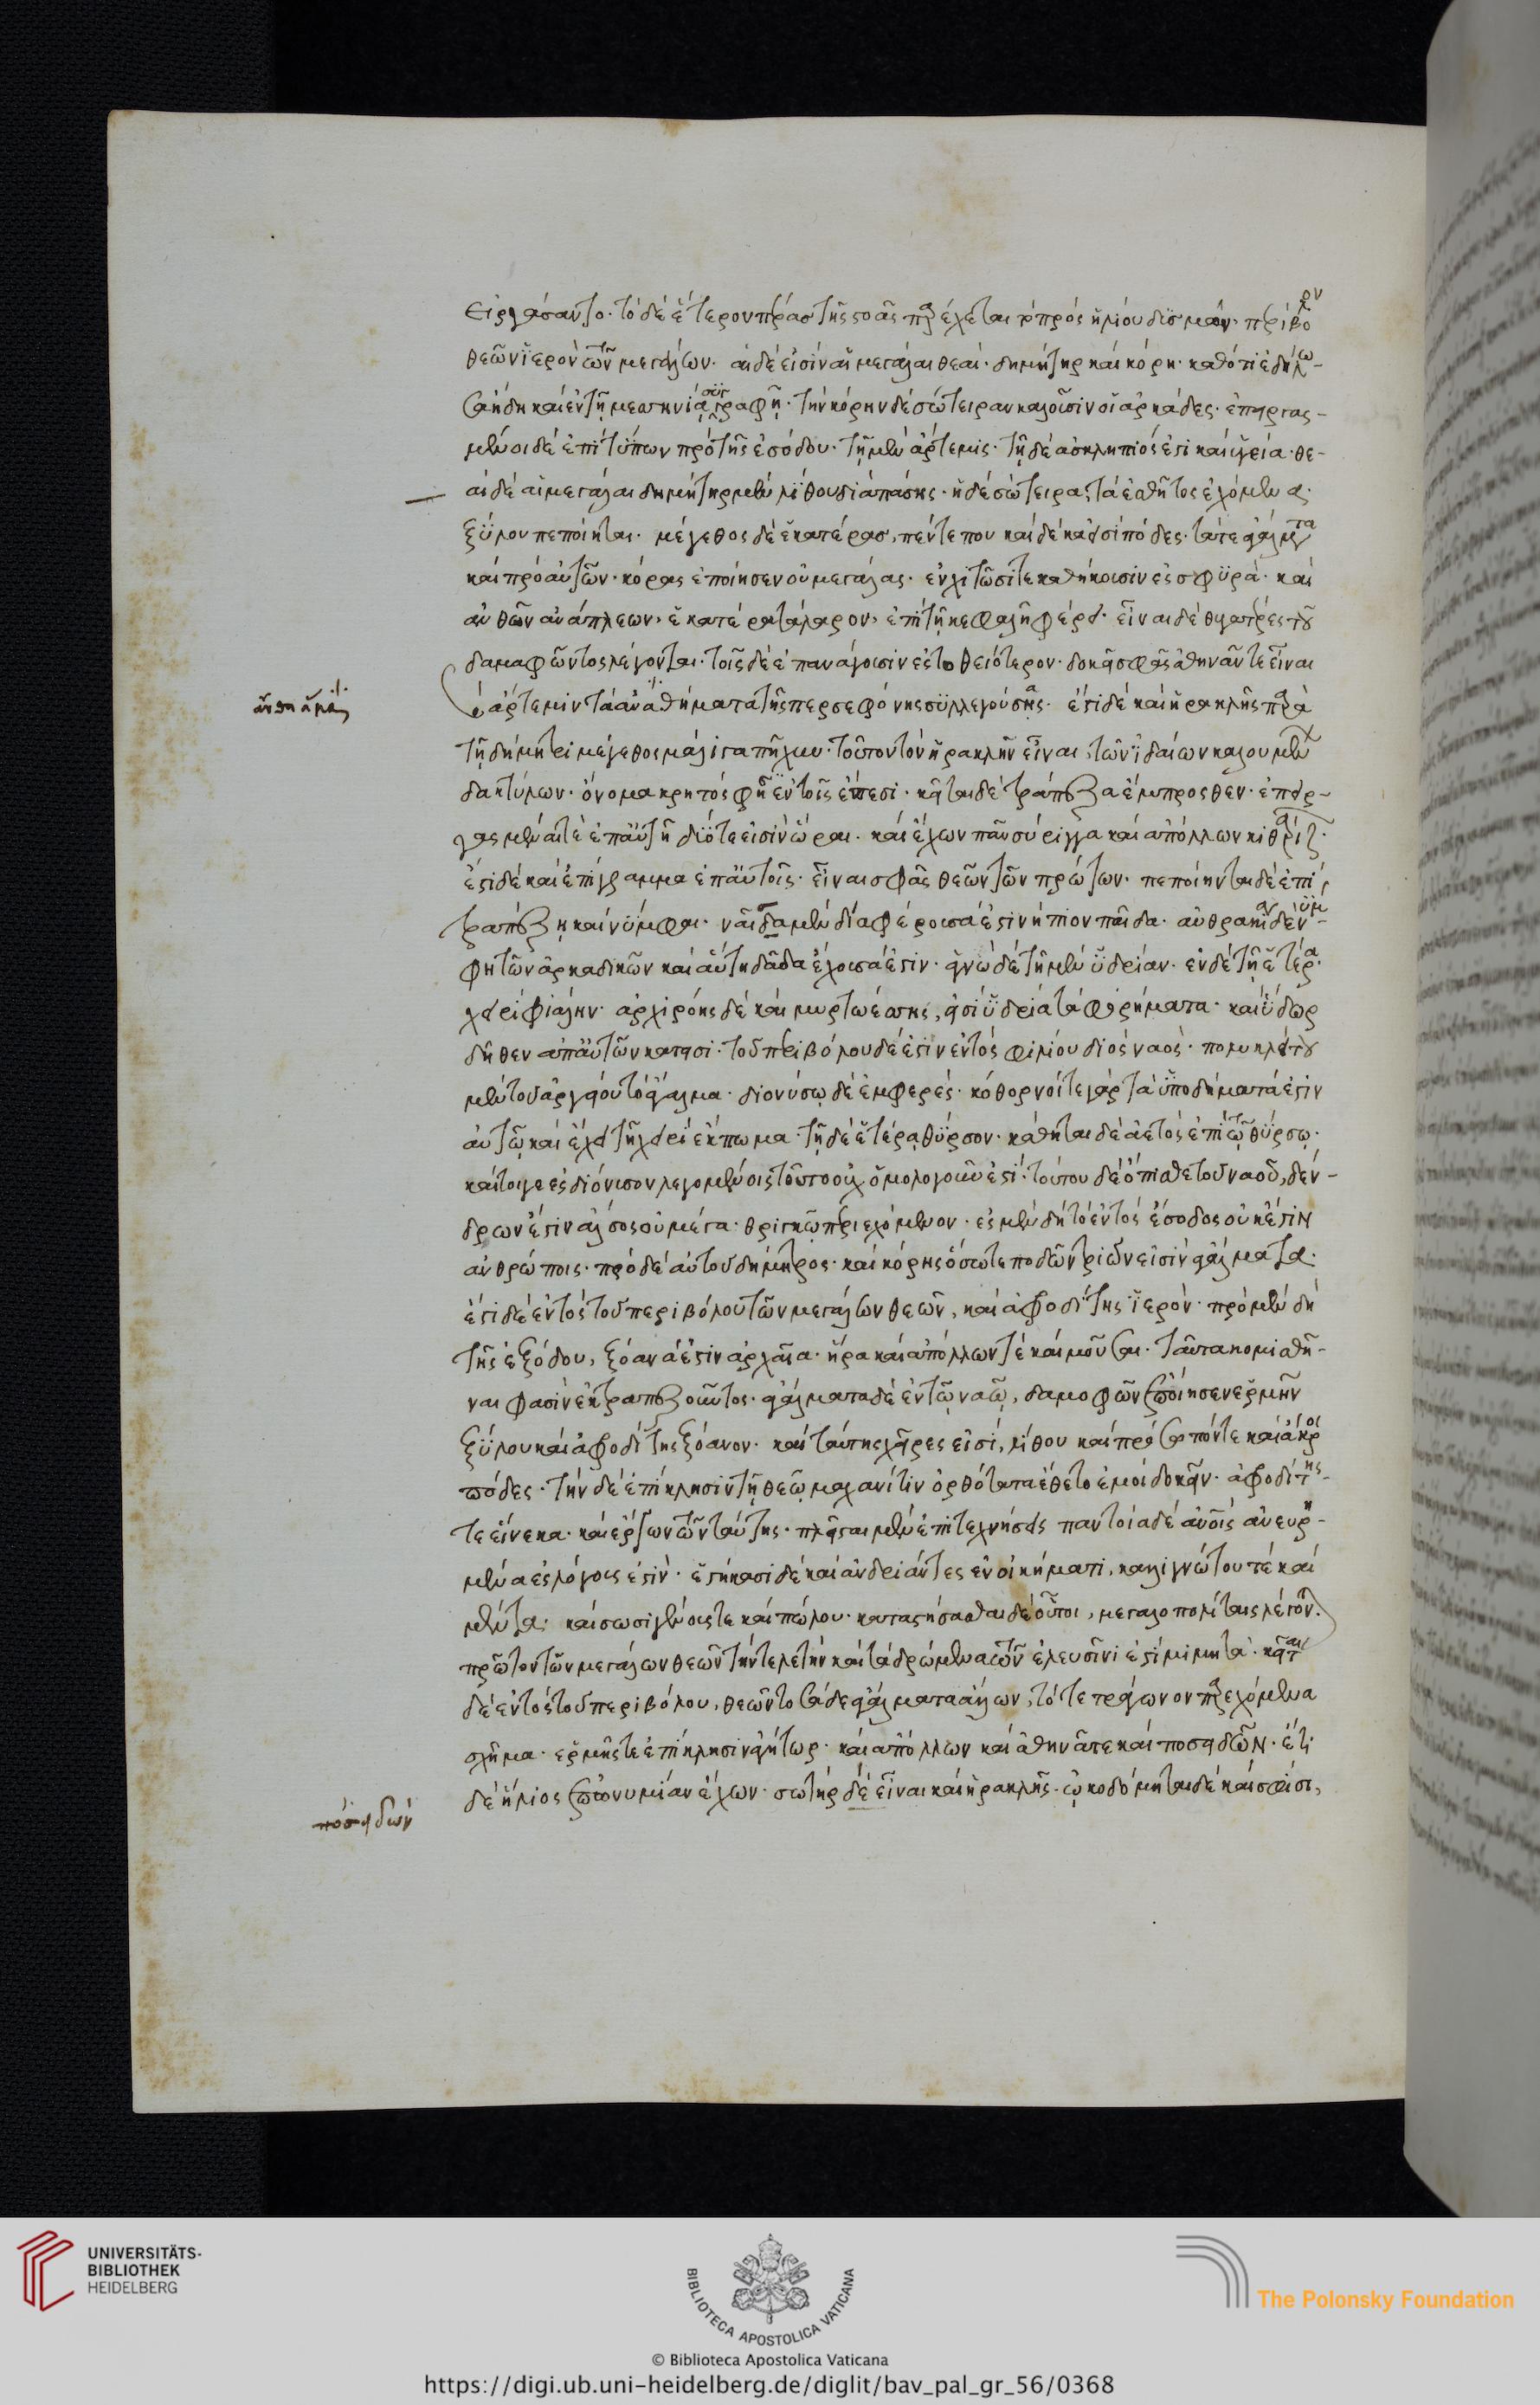 εἰργάσαντο. τὸ δὲ ἕτερον πέρας τῆς στοᾶς παρέχεται τὸ πρὸς ἡλίου δυσμῶν. περίβολον
θεῶν ἱερὸν τῶν μεγάλων. αἱ δέ εἰσιν αἱ μεγάλαι θεαὶ. δημήτηρ καὶ κόρη. καθότι ἐδήλω-
σα ἤδη καὶ ἐν τῇ μεσσηνίᾳ συγγραφῇ. τὴν κόρην δὲ σώτειραν καλοῦσιν οἱ ἀρκάδες. ἐπειργασ-
μένοι δὲ ἐπὶ τύπων πρὸ τῆς ἐσόδου. τῇ μὲν ἄρτεμις. τῇ δὲ ἀσκληπιός ἐστι καὶ ὑγεία. θε-
αὶ δὲ αἱ μεγάλαι δημήτηρ μὲν λίθου διαπάσης. ἡ δὲ σώτειρα, τὰ ἐσθῆτος ἐχόμενα.
ξύλου πεποίηται. μέγεθος δὲ ἑκατέρας, πέντε που καὶ δέκα εἰσὶ πόδες. τά τε ἀγάλματα
καὶ πρὸ αὐτῶν. κόρας ἐποίησεν οὐ μεγάλας. ἐν χιτῶσί τε καθήκουσιν ἐς σφυρὰ. καὶ
ἀνθῶν ἀνάπλεων, ἑκατέρα τάλαρον, ἐπὶ τῇ κεφαλῇ φέρει. εἶναι δὲ θυγατέρες τοῦ
δαμοφῶντος λέγονται. τοῖς δὲ ἐπανάγουσιν ἐς τὸ θειότερον. δοκεῖ σφᾶς ἀθηνᾶν τε εἶναι
ἄρτεμιν τὰ ἀναθήματα τῆς περσεφόνης συλλεγούσας. ἔστι δὲ καὶ ἡρακλῆς παρὰ
ἄνθη ἅμα
τῇ δήμητρι μέγεθος μάλιστα πῆχυν. τοῦτον τὸν ἡρακλῆν εἶναι, τῶν ἰδαίων καλουμένων
δακτύλων. ὀνομάκριτός φησιν ἐν τοῖς ἔπεσι. κεῖται δὲ τράπεζα ἔμπροσθεν. ἐπειρ-
γασμέναι τε ἐπ᾽ αὐτῇ δύο τε εἰσὶν ὧραι. καὶ ἔχων πᾶν σύριγγα καὶ ἀπόλλων κιθαρίζων.
ἔστι δὲ καὶ ἐπίγραμμα ἐπ᾽ αὐτοῖς. εἶναι σφᾶς θεῶν τῶν πρώτων. πεποίηνται δὲ ἐπὶ
τραπέζῃ καὶ νύμφαι. νάϊδα μὲν διαφέρουσά ἐστι νήπιον παῖδα. ἀνθρακία δὲ νύμ-
φη τῶν ἀρκαδικῶν καὶ αὕτη δᾷδα ἔχουσά ἐστιν. ἁγνὼ δὲ τῇ μὲν ὑδρίαν. ἐν δὲ τῇ ἑτέρᾳ
χειρὶ φιάλην. ἀρχιρόης δὲ καὶ μυρτωέσσης, εἰσὶ ὑδρίαι τὰ φορήματα. καὶ ὕδωρ
δῆθεν ἀπ᾽ αὐτῶν κάτεισι. τοῦ περιβόλου δέ ἐστιν ἐντὸς φιλίου διὸς ναὸς. πολυκλείτου
μὲν τοῦ ἀργείου τὸ ἄγαλμα. διονύσῳ δὲ ἐμφερὲς. κόθορνοί τε γὰρ τὰ ὑποδήματά ἐστιν
αὐτῷ καὶ ἔχει τῇ χειρὶ ἔκπωμα. τῇ δὲ ἑτέρᾳ θύρσον. κάθηται δὲ ἀετὸς ἐπὶ τῷ θύρσῳ.
καίτοι γε ἐς διόνυσον λεγομένοις τοῦτο οὐχ ὁμολογοῦν ἐστί. τούτου δὲ ὄπισθε τοῦ ναοῦ, δέν-
δρων ἐστὶν ἄλσος οὐ μέγα. θριγκῷ περιεχόμενον. ἐς μὲν δὴ τὸ ἐντὸς ἔσοδος οὐκ ἔστιν
ἀνθρώποις. πρὸ δὲ αὐτοῦ δήμητρος. καὶ κόρης ὅσον τε ποδῶν τριῶν εἰσὶν ἀγάλματα.
ἔστι δὲ ἐντὸς τοῦ περιβόλου τῶν μεγάλων θεῶν, καὶ ἀφροδίτης ἱερὸν. πρὸ μὲν δὴ
τῆς ἐξόδου, ξόανά ἐστιν ἀρχαῖα. ἥρα καὶ ἀπόλλων τὲ καὶ μοῦσαι. ταῦτα κομισθῆ-
ναι φασὶν ἐκ τραπεζοῦντος. ἀγάλματα δὲ ἐν τῷ ναῷ, δαμοφῶν ἐποίησεν ἑρμῆν
ξύλου καὶ ἀφροδίτης ξόανον. καὶ ταύτης χεῖρές εἰσι, λίθου καὶ πρόσωπόν τε καὶ ἄκροι
πόδες. τὴν δὲ ἐπίκλησιν τῇ θεῷ μαχανῖτιν ὀρθότατα ἔθετο ἐμοὶ δοκεῖν. ἀφροδίτης
τε εἵνεκα. καὶ ἔργων τῶν ταύτης. πλεῖσται μὲν ἐπιτεχνήσεις παντοῖα δὲ ἀνθρώποις ἀνευρη-
μένα ἐς λόγους ἐστὶν. ἑστήκασι δὲ καὶ ἀνδριάντες ἐν οἰκήματι, καλλιγνώτου τὲ καὶ
μέντα. καὶ σωσιγένους τε καὶ πώλου. καταστήσασθαι δὲ οὗτοι, μεγαλοπολίταις λέγονται
πρῶτον τῶν μεγάλων θεῶν τὴν τελετὴν καὶ τὰ δρώμενα τῶν ἐλευσῖνι ἐστὶ μιμητὰ. κεῖται
δὲ ἐντὸς τοῦ περιβόλου, θεῶν τοσάδε ἀγάλματα ἄλλων, τό τε τράγωνον παρεχόμενα
σχῆμα. ἑρμῆς τε ἐπίκλησιν ἀγήτωρ. καὶ ἀπόλλων καὶ ἀθηνᾶ τε καὶ ποσειδῶν. ἔτι
δὲ ἥλιος ἐπωνυμίαν ἔχων. σωτὴρ δὲ εἶναι καὶ ἡρακλῆς. ᾠκοδόμηται δὲ καὶ σφίσι,
ποσειδών
UNIVERSITÄTS-
BIBLIOTHEK
HEIDELBERG
BIBLIOTECA APOSTOLICA VATICANA
The Polonsky Foundation
© Biblioteca Apostolica Vaticana
https://digi.ub.uni-heidelberg.de/diglit/bav_pal_gr_56/0368